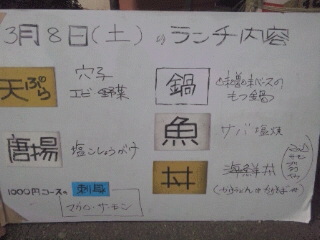 3月8日(土)のランチ内容
天ぷら 穴子
エビ 野菜
鍋 味噌ベースの
もつ鍋
唐揚 塩こしょうがけ
魚 サバ塩焼
丼 海鮮丼
1000円コースの 刺身
マグロ・サーモン